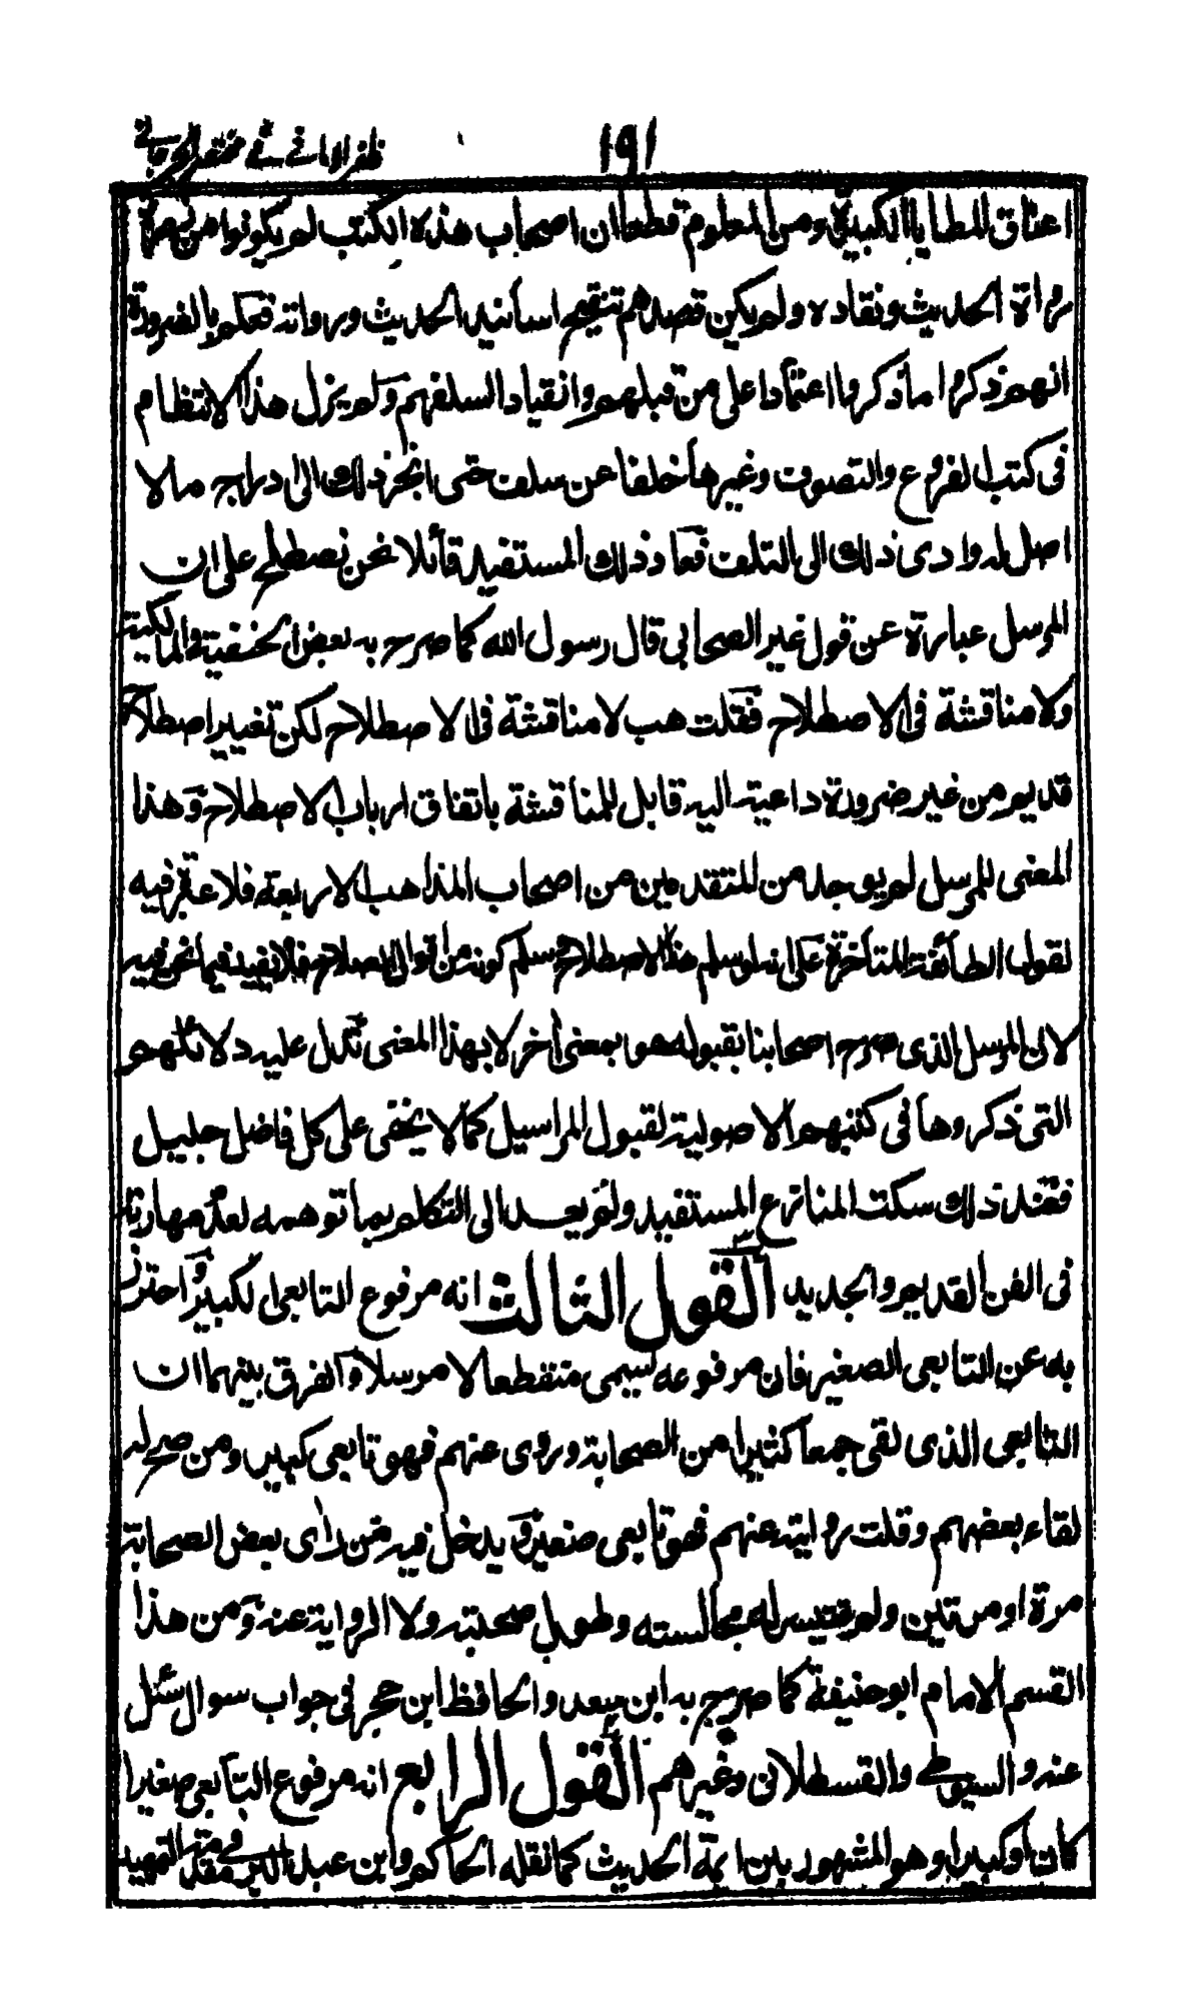 ١٩١
ظفر الاماني في مختصر الجرجاني
اعناق المطايا الكبيرة ومن المعلوم قطعا ان اصحاب هذه الكتب لم يكونوا من مهرة
رواة الحديث ونقاده ولم يكن قصدهم تنقيح اسانيد الحديث ورواته فعلم بالضرورة
انهم ذكروا ما ذكروا اعتمادا على من قبلهم وانقيادا لسلفهم ولم يزل هذا الانتظام
فى كتب الفروع والتصوف وغيرها خلفا عن سلف حتى انجر ذلك الى ادراج ما لا
اصل له وادى ذلك الى التلف فعاد ذلك المستفيد قائلا نحن نصطلح على ان
المرسل عبارة عن قول غير الصحابى قال رسول الله كما صرح به بعض الحنفية والمالكية
ولا مناقشة فى الاصطلاح فقلت هب لا مناقشة فى الاصطلاح لكن تغيير اصطلاح
قديم من غير ضرورة داعية اليه قابل للمناقشة باتفاق ارباب الاصطلاح وهذا
المعنى للمرسل لم يوجد من المتقدمين من اصحاب المذاهب الاربعة فلا عبرة فيه
لقول الطائفة المتأخرة على انه لو سلم هذا الاصطلاح وسلم كونه من اقوال الصلاح فلا يفيد فيما نحن فيه
لان المرسل الذى صرح اصحابنا بقبوله هو بمعنى أخر لا بهذا المعنى تدل عليه دلائلهم
التى ذكروها فى كتبهم الاصولية لقبول المراسيل كما لا يخفى على كل فاضل جليل
فعند ذلك سكت المنازع المستفيد ولم يعد الى التكلم بما توهمه لعدم مهارته
فى الفن القديم والجديد القول الثالث انه مرفوع التابعى الكبير واحترز
به عن التابعى الصغير فان مرفوعه يسمى منقطعا لا مرسلا والفرق بينهما ان
التابعى الذى لقى جمعا كثيرا من الصحابة وروى عنهم فهو تابعى كبير ومن صح له
لقاء بعضهم وقلت روايته عنهم فهو تابعى صغير ويدخل فيه من رأى بعض الصحابة
مرة او مرتين ولم يتيسر له مجالسته وطول صحبته ولا الرواية عنه ومن هذا
القسم الامام ابو حنيفة كما صرح به ابن سعد والحافظ ابن حجر فى جواب سوال سئل
عنه والسيوطى والقسطلانى وغيرهم القول الرابع انه مرفوع التابعى صغيرا
كان او كبيرا وهو المشهور بين ائمة الحديث كما نقله الحاكم وابن عبد البر فى مقدمة التمهيد